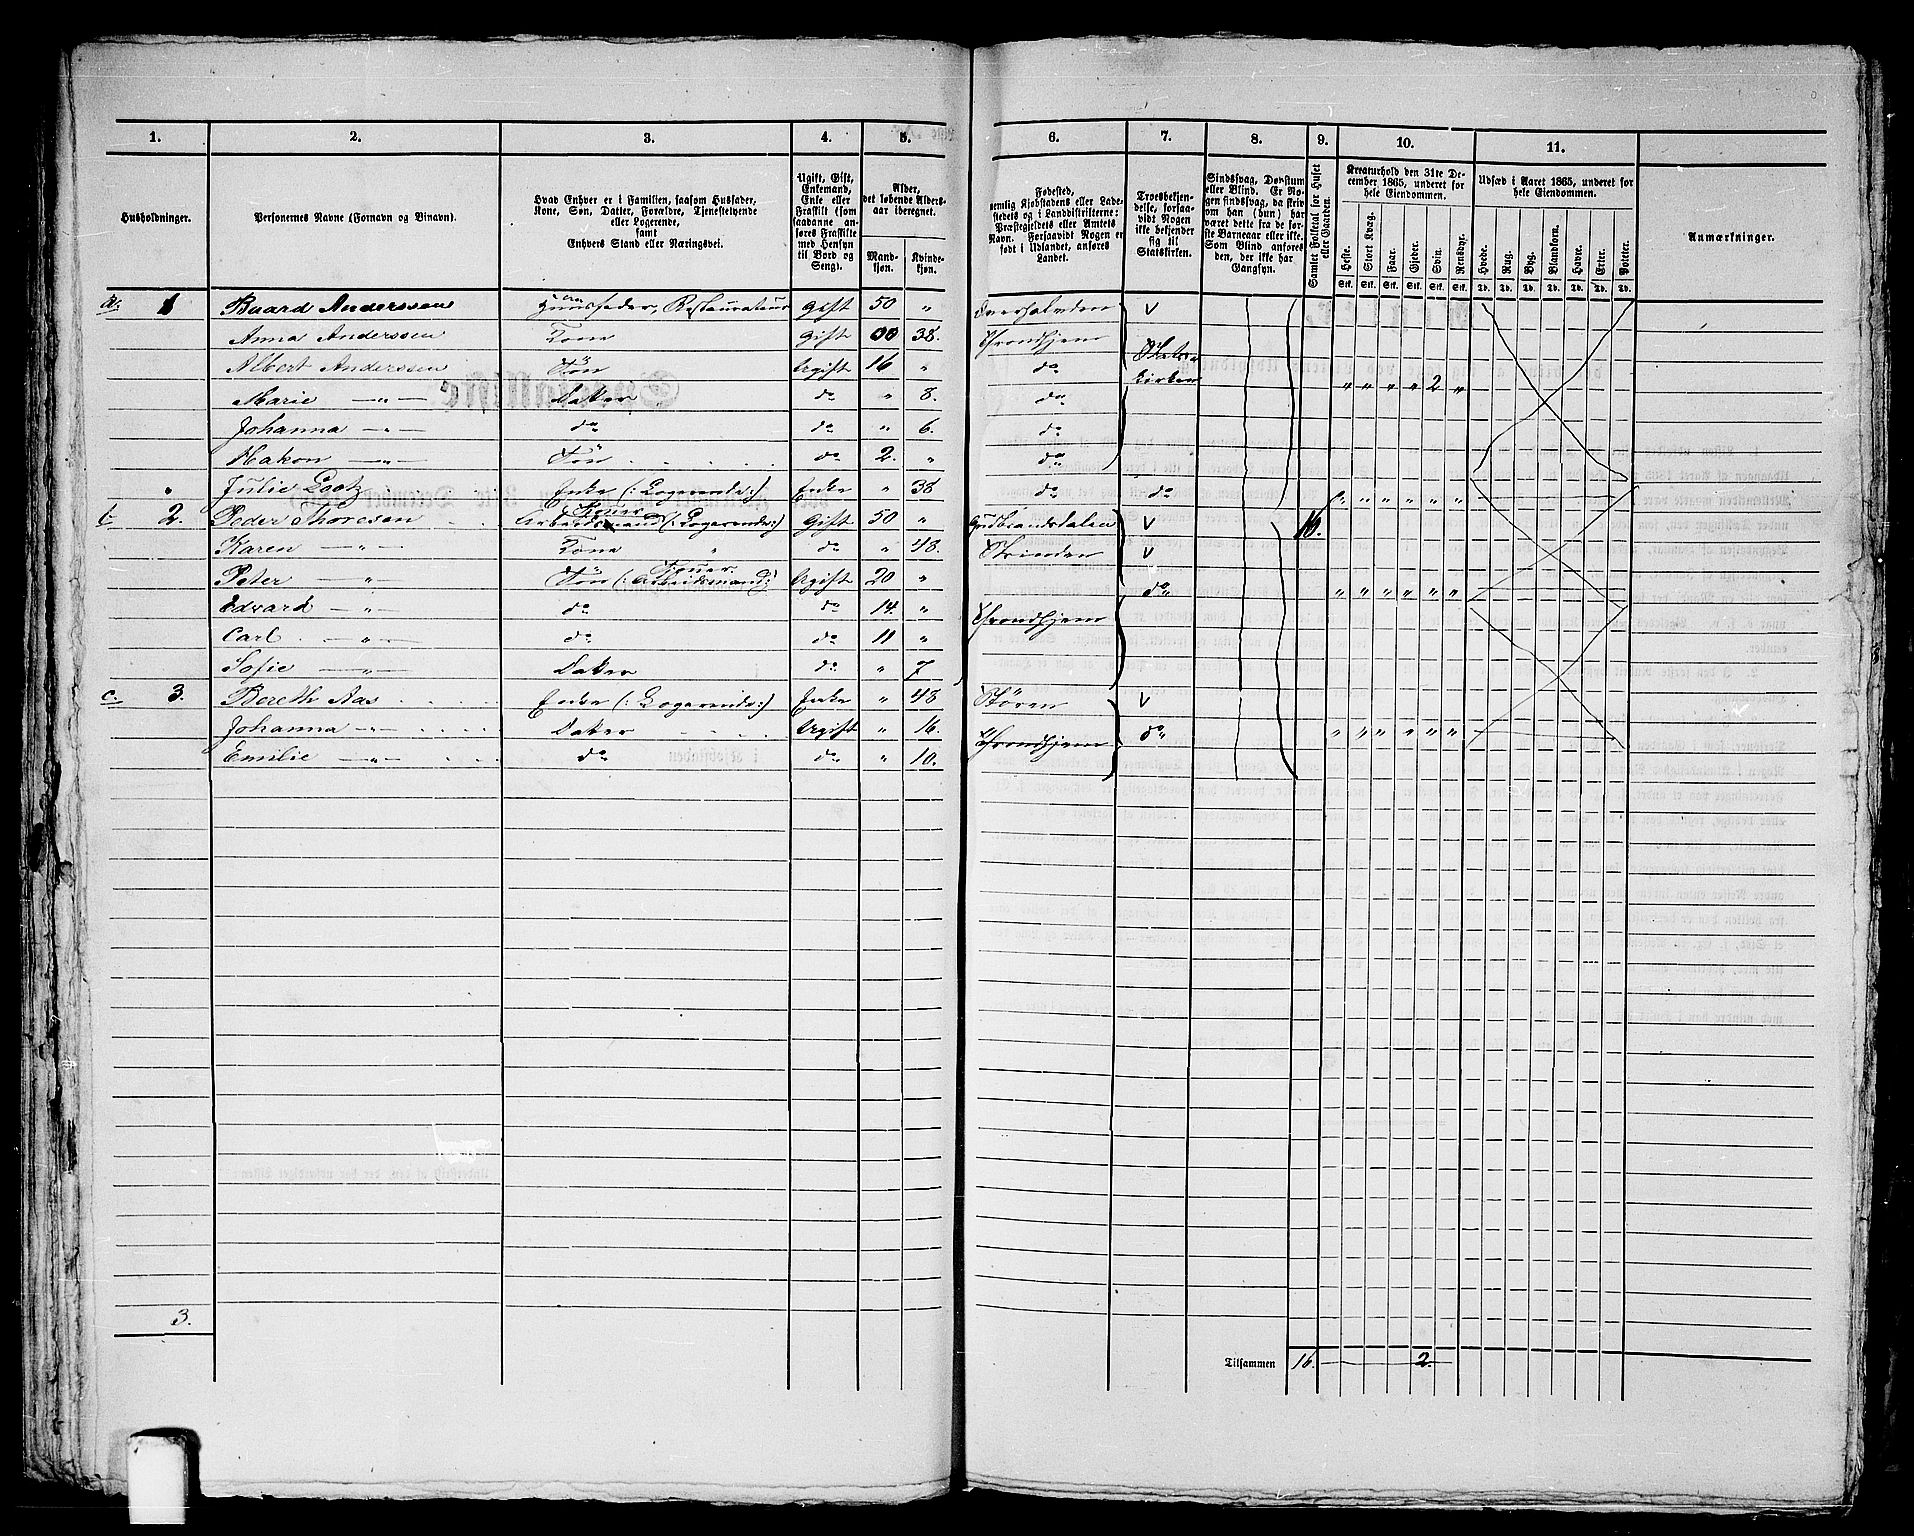 1. 2. 3. 4. 5. 6. 7. 8. 9. 10. 11.
Husholdninger.
Personernes Navne (Fornavn og Binavn).
Hvad Enhver er i Familien, saasom Husfader,
Kone, Søn, Datter, Forældre, Tjenestetyende
eller Logerende,
samt
Enhvers Stand eller Næringsvei.
Ugift, Gift,
Enkemand,
Enke eller
Fraskilt (som
saadanne an-
føres Fraskilte
med Hensyn
til Bord og
Seng).
Alder,
det løbende Alders-
aar iberegnet.
Mand-
kjøn.
Kvinde-
kjøn.
Fødested,
nemlig Kjøbstadens eller Lade-
stedets og i Landdistrikterne:
Præstegjeldets eller Amtets
Navn. Forsaavidt Nogen er
født i Udlandet, anføres
Landet.
Troesbekjen-
delse, forsaa-
vidt Nogen
ikke bekjender
sig til
Statskirken.
Sindssvag, Døvstum
eller Blind. Er No-
gen sindssvag, da skriv
om han (hun) har
været dette fra de før-
ste Barneaar eller ikke.
Som Blind anføres
den, der ikke har
Gangsyn.
Samlet Folketal for Huset
eller Gaarden.
Kreaturhold den 31te De-
cember 1865, underet for
hele Eiendommen.
Heste. Stort Kvæg. Faar. Gjeder. Svin. Rensdyr.
Stk. Stk. Stk. Stk. Stk. Stk.
Udsæd i Aaret 1865, underet for
hele Eiendommen.
Hvede. Rug. Byg. Blandkorn. Havre. Erter. Poteter.
Td. Td. Td. Td. Td. Td. Td.
Anmærkninger.
a. 1 Baard Anderssen Huusfader, Restaurateur Gift 50 " Overhalvden V
Anna Anderssen Kone Gift 00 38. Throndhjem
Albert Anderssen Søn Ugift 16 " do Stats-
Marie — " — Dater do " 8. do kirken " " " " 2 "
Johanna — " — do do " 6. do
Hakon — " — Søn do 2. " do
" Julie Lootz Enke (: Logerende:) Enke " 38 do do " " " " " "
b. 2. Peder Thoresen Arbeidsmand (: Logerende:) Gift 50 " Gudbrandsdalen V 16.
Karen — " — Kone do " 48. Strinden V
Peter — " — Søn (: Arbeidsmand:) Ugift 20 " do " " " " " "
Edvard — " — do do 14. " Throndhjem
Carl — " — do do 11 "
Sofie — " — Dater do " 7
c. 3. Bereth Aas Enke (: Logerende:) Enke " 48 Støren V
Johanna — " — Dater Ugift " 16. Throndhjem do " " " " " "
Emilie — " — do do " 10.
3.
Tilsammen 16. 2.